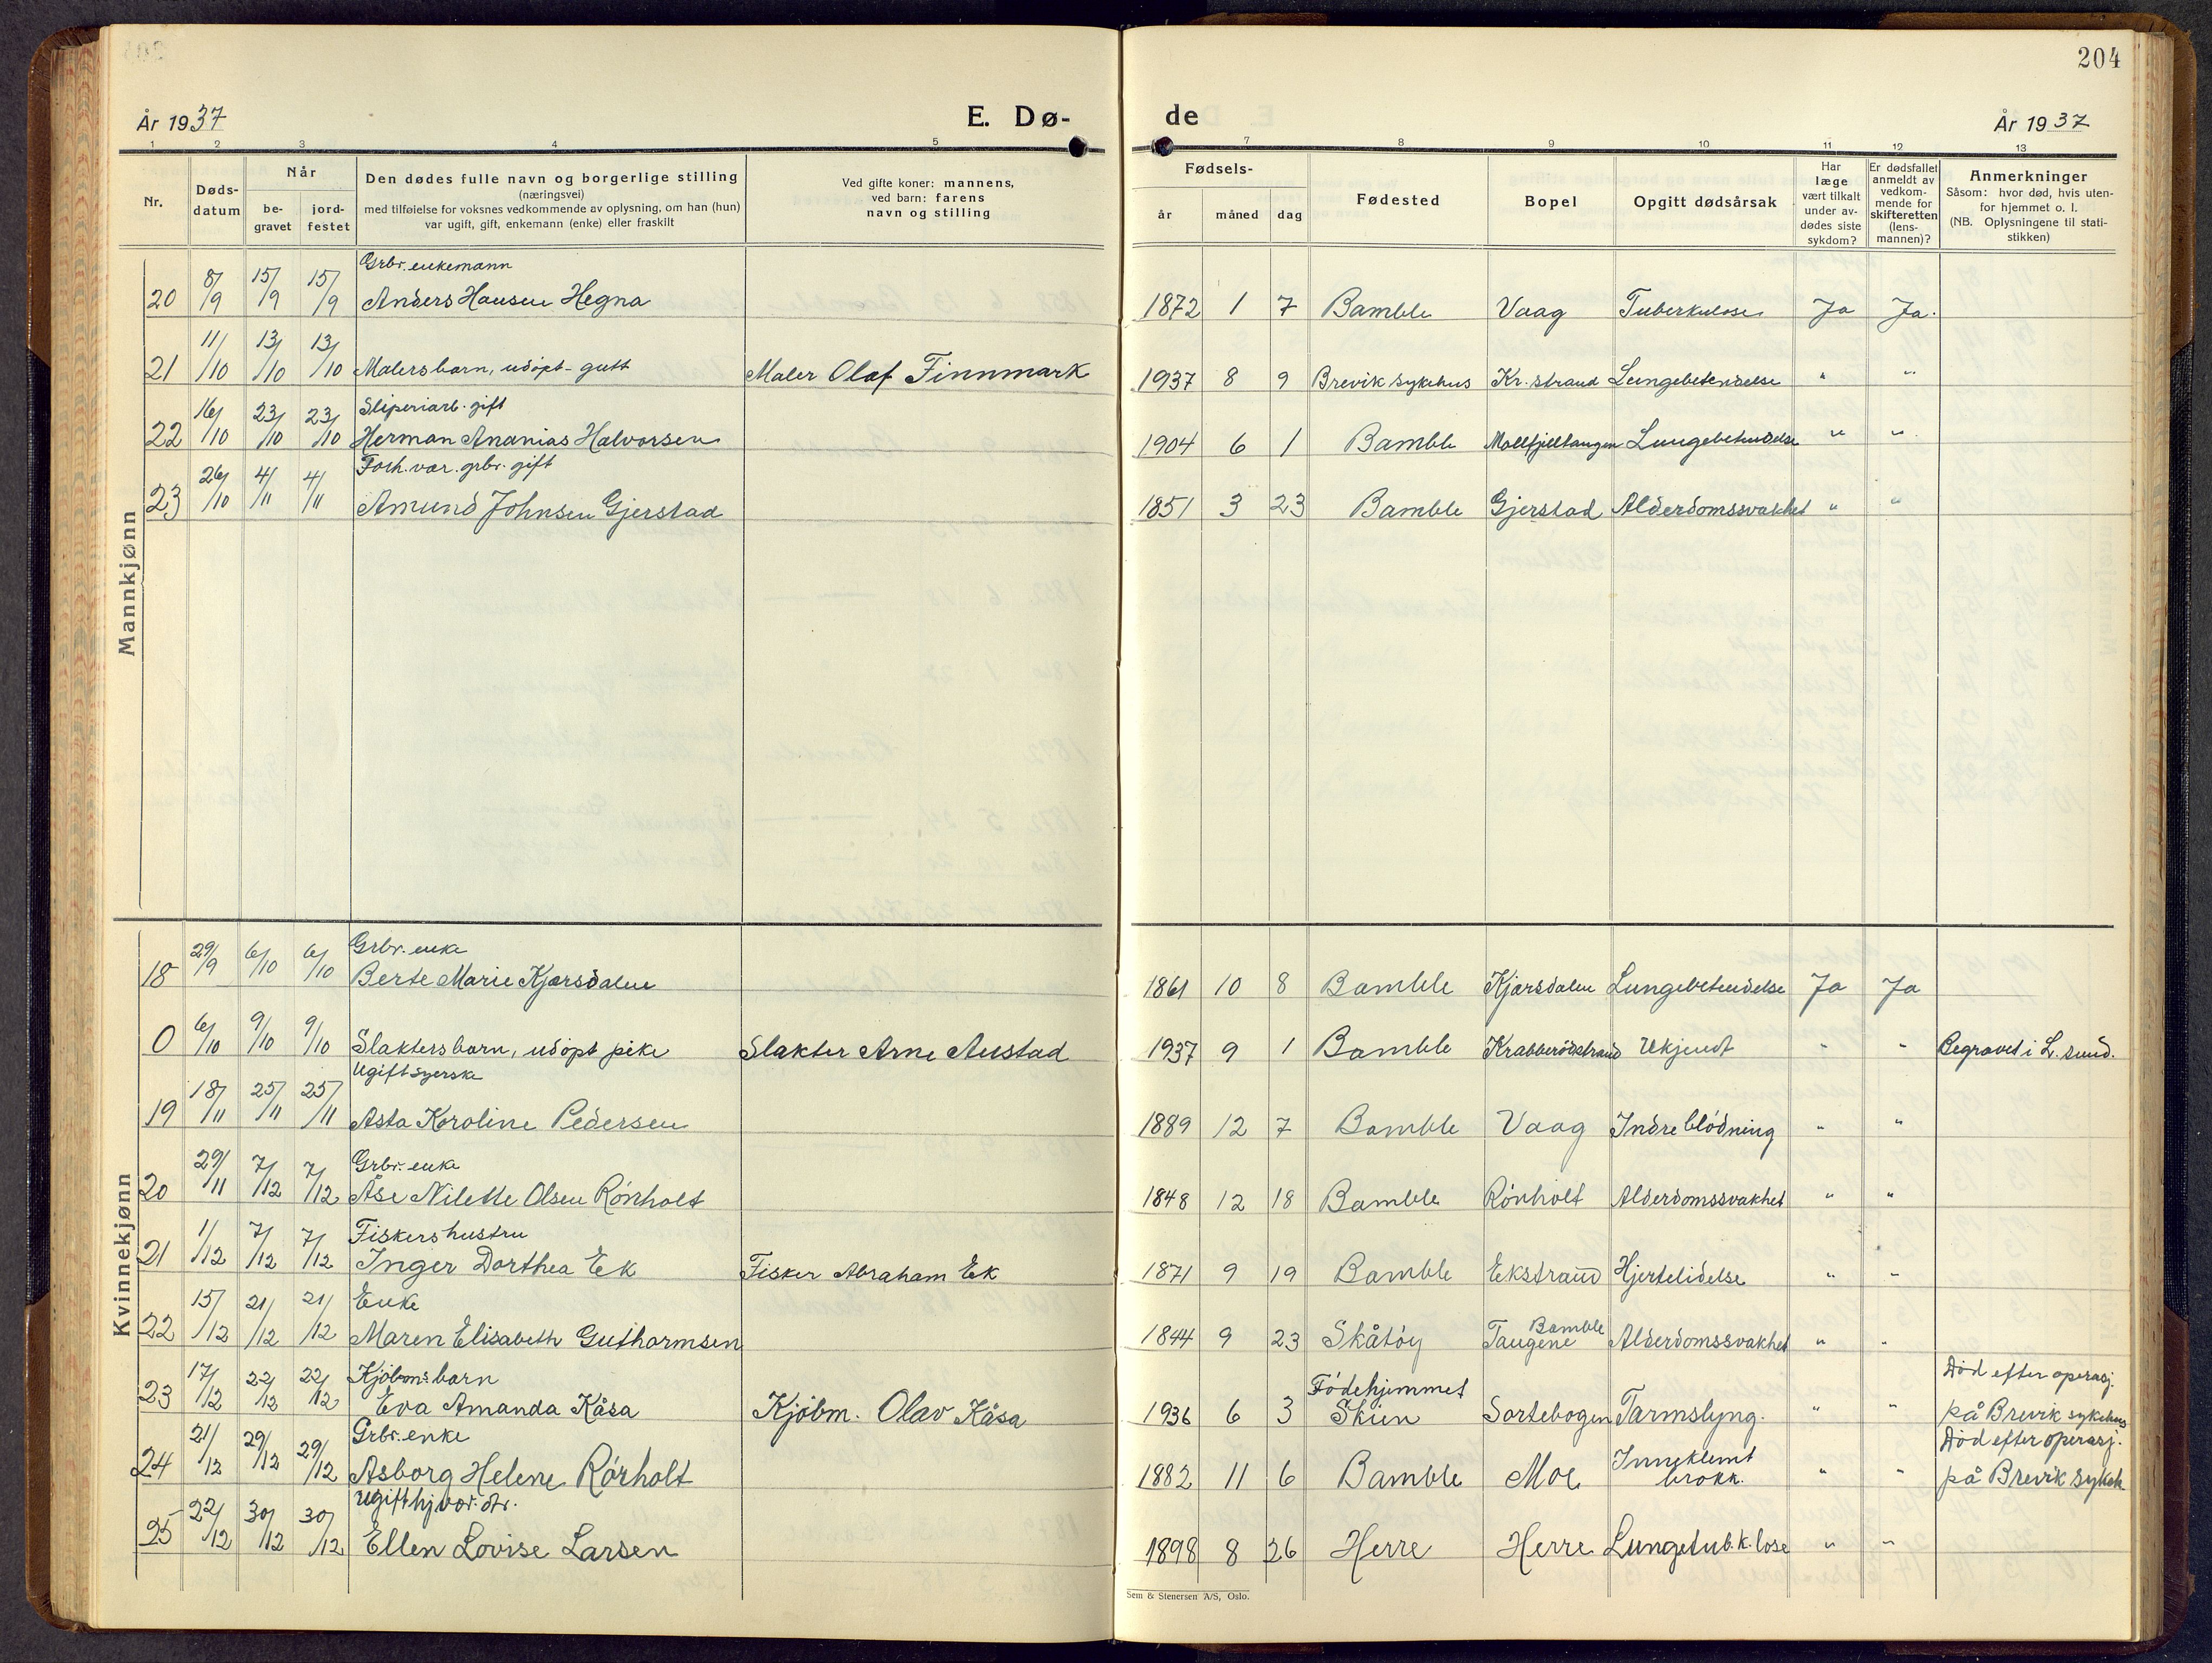 204
År 1937 E. Dø- de År 1937
1 2 3 4 5 7 8 9 10 11 12 13
Nr.
Døds-
datum
Når
be-
gravet
jord-
festet
Den dødes fulle navn og borgerlige stilling
(næringsvei)
med tilføielse for voksnes vedkommende av oplysning, om han (hun)
var ugift, gift, enkemann (enke) eller fraskilt
Ved gifte koner: mannens,
ved barn: farens
navn og stilling
Fødsels-
år måned dag
Fødested
Bopel
Opgitt dødsårsak
Har
læge
vært tilkalt
under av-
dødes siste
sykdom?
Er dødsfallet
anmeldt av
vedkom-
mende for
skifteretten
(lens-
mannen)?
Anmerkninger
Såsom: hvor død, hvis uten-
for hjemmet o. l.
(NB. Oplysningene til stati-
stikken)
Mannkjønn
Grbr. enkemann
20 8/9 15/9 15/9 Anders Hansen Hegna 1872 1 7 Bamble Vaag Tuberkulose Ja Ja.
21 11/10 13/10 13/10 Malersbarn, udöpt-gutt Maler Olaf Finnmark 1937 8 9 Brevik sykehus Kr. strand Lungebetendelse " "
Sliperiarb. gift
22 16/10 23/10 23/10 Herman Ananias Halvorsen 1904 6 1 Bamble Mollfjelltangen Lungebetendelse " "
Forh. vær. grbr. gift
23 26/10 4/11 4/11 Amund Johnsen Gjerstad 1851 3 23 Bamble Gjerstad Alderdomssvakhet " "
Kvinnekjønn
Grbr. enke
18 29/9 6/10 6/10 Berte Marie Kjærsdalen 1861 10 8 Bamble Kjærsdalen Lungebetendelse Ja Ja
0 6/10 9/10 9/10 Slaktersbarn, udöpt pike Slakter Arne Austad 1937 9 1 Bamble Krabberödstrand Ukjendt " " Begravet i L. sund.
Ugift syerske
19 18/11 25/11 25/11 Asta Karoline Pedersen 1889 12 7 Bamble Vaag Indre blödning " "
Grbr. enke
20 29/11 7/12 7/12 Åse Nilette Olsen Rönholt 1848 12 18 Bamble Rönholt Alderdomssvakhet " "
Fiskers hustru
21 1/12 7/12 7/12 Inger Dorthea Ek Fisker Abraham Ek 1871 9 19 Bamble Ekstrand Hjertelidelse " "
Enke Bamble
22 15/12 21/12 21/12 Maren Elisabeth Guthormsen 1844 9 23 Skåtöy Tangene Alderdomssvakhet " "
Kjöbms barn Födehjemmet Död efter operasj.
23 17/12 22/12 22/12 Eva Amanda Kåsa Kjöbm. Olav Kåsa 1936 6 3 Skien Sortebogen Tarmslyng. " " på Brevik sykehus
Grbr. enke Inneklemt Död efter operasj.
24 21/12 29/12 29/12 Asborg Helene Rörholt 1882 11 6 Bamble Moe brokk. " " på Brevik sykeh
Ugift hj. vær. dtr.
25 22/12 30/12 30/12 Ellen Lovise Larsen 1898 8 26 Herre Herre Lungetub.k.lose " "
Sem & Stenersen A/S, Oslo.